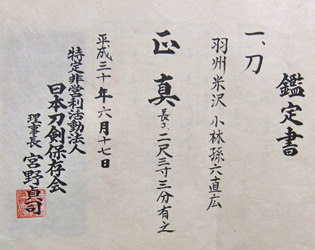 鑑定書
一、刀
羽州米沢 小林孫六直広
正真 長さ二尺三寸三分有之
平成三十年六月十七日
特定非営利活動法人
日本刀剣保存会
理事長 宮野貞司